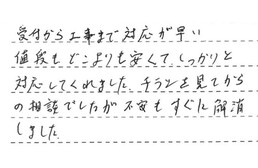 受付から工事まで対応が早い
値段もどこよりも安くて、しっかりと
対応してくれました。チラシを見てから
の相談でしたが不安もすぐに解消
しました